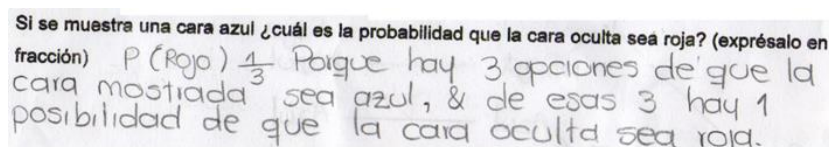 Si se muestra una cara azul ¿cuál es la probabilidad que la cara oculta sea roja? (exprésalo en
fracción) P(Rojo) 1/3 Porque hay 3 opciones de que la
cara mostrada sea azul, & de esas 3 hay 1
posibilidad de que la cara oculta sea roja.